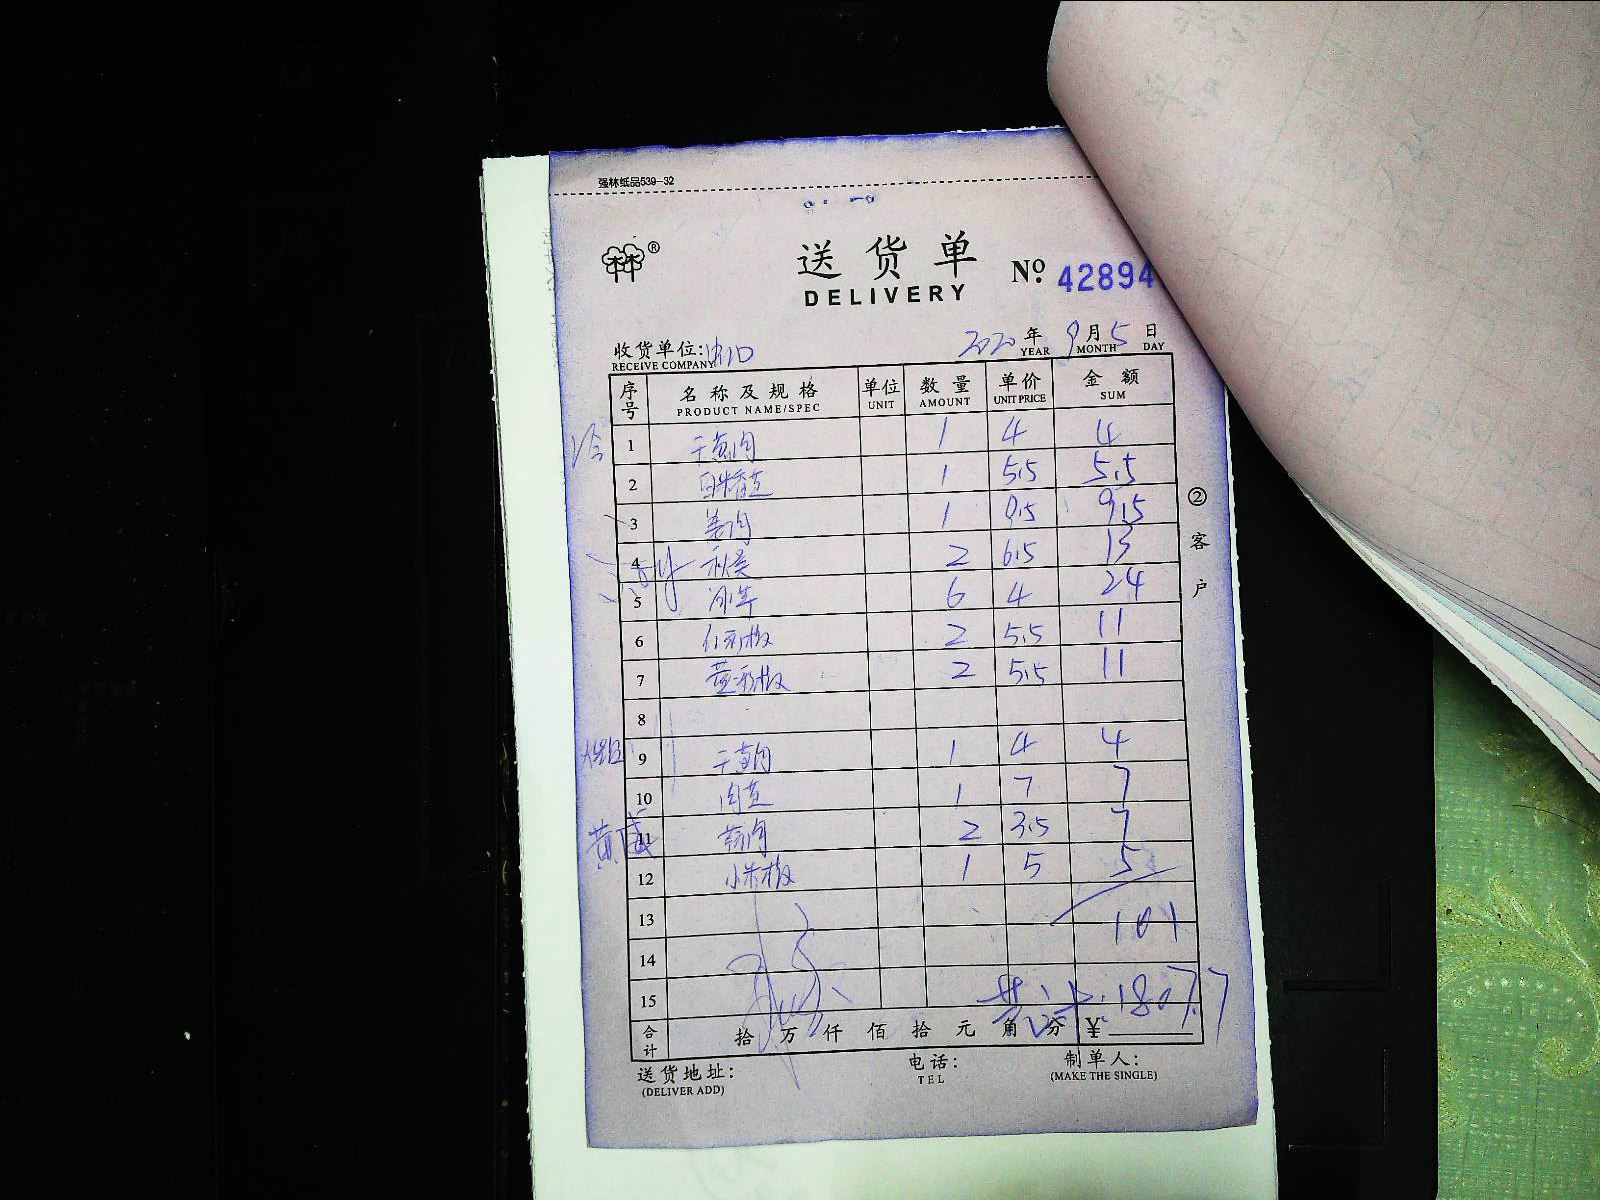 强林纸品539-32
送货单
DELIVERY
№ 42894
收货单位: 2020年9月5日
RECEIVE COMPANY YEAR MONTH DAY
序号 名称及规格 单位 数量 单价 金额
PRODUCT NAME/SPEC UNIT AMOUNT UNIT PRICE SUM
1 干黄肉 1 4 4
2 白米 1 5.5 5.5
3 姜肉 1 9.5 9.5
4 秋葵 2 6.5 13
5 6 4 24
6 红彩椒 2 5.5 11
7 黄彩椒 2 5.5 11
8
9 干黄肉 1 4 4
10 1 7 7
黄 11 2 3.5 7
12 小米椒 1 5 5
13 101
14
15 共计: 1807.7
合计 拾 万 仟 佰 拾 元 角 分 ¥
送货地址: 电话: 制单人:
(DELIVER ADD) TEL (MAKE THE SINGLE)
②客户